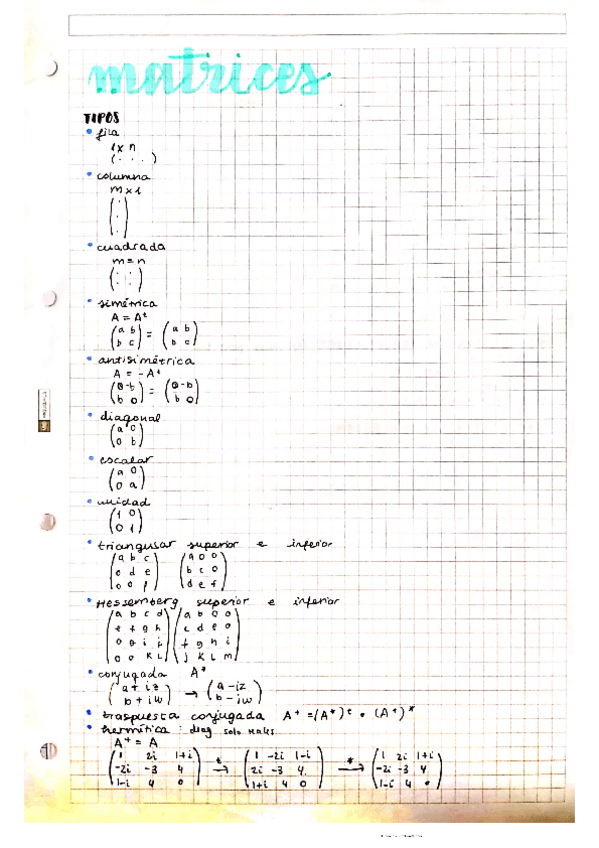 matrices
TIPOS
• fila
1 x n
( . . . )
• columna
m x 1
( . . . )
• cuadrada
m = n
( : : )
• simétrica
A = Aᵗ
(a b; b c) = (a b; b c)
• antisimétrica
A = -Aᵗ
(0 -b; b 0) = (0 -b; b 0)
• diagonal
(a 0; 0 b)
• escalar
(a 0; 0 a)
• unidad
(1 0; 0 1)
• triangular superior e inferior
(a b c; 0 d e; 0 0 f) (a 0 0; b c 0; d e f)
• Hessemberg superior e inferior
(a b c d; e f g h; 0 i j; 0 0 k L) (a b 0 0; c d e 0; f g h i; j k L m)
• conjugada A*
(a + iz; b + iw) → (a - iz; b - iw)
• traspuesta conjugada A⁺ = (A*)ᵗ = (Aᵗ)*
• hermítica : diag solo reales
A⁺ = A
(1 2i 1+i; -2i -3 4; 1-i 4 0) →ᵗ (1 -2i 1-i; 2i -3 4; 1+i 4 0) →* (1 2i 1+i; -2i -3 4; 1-i 4 0)